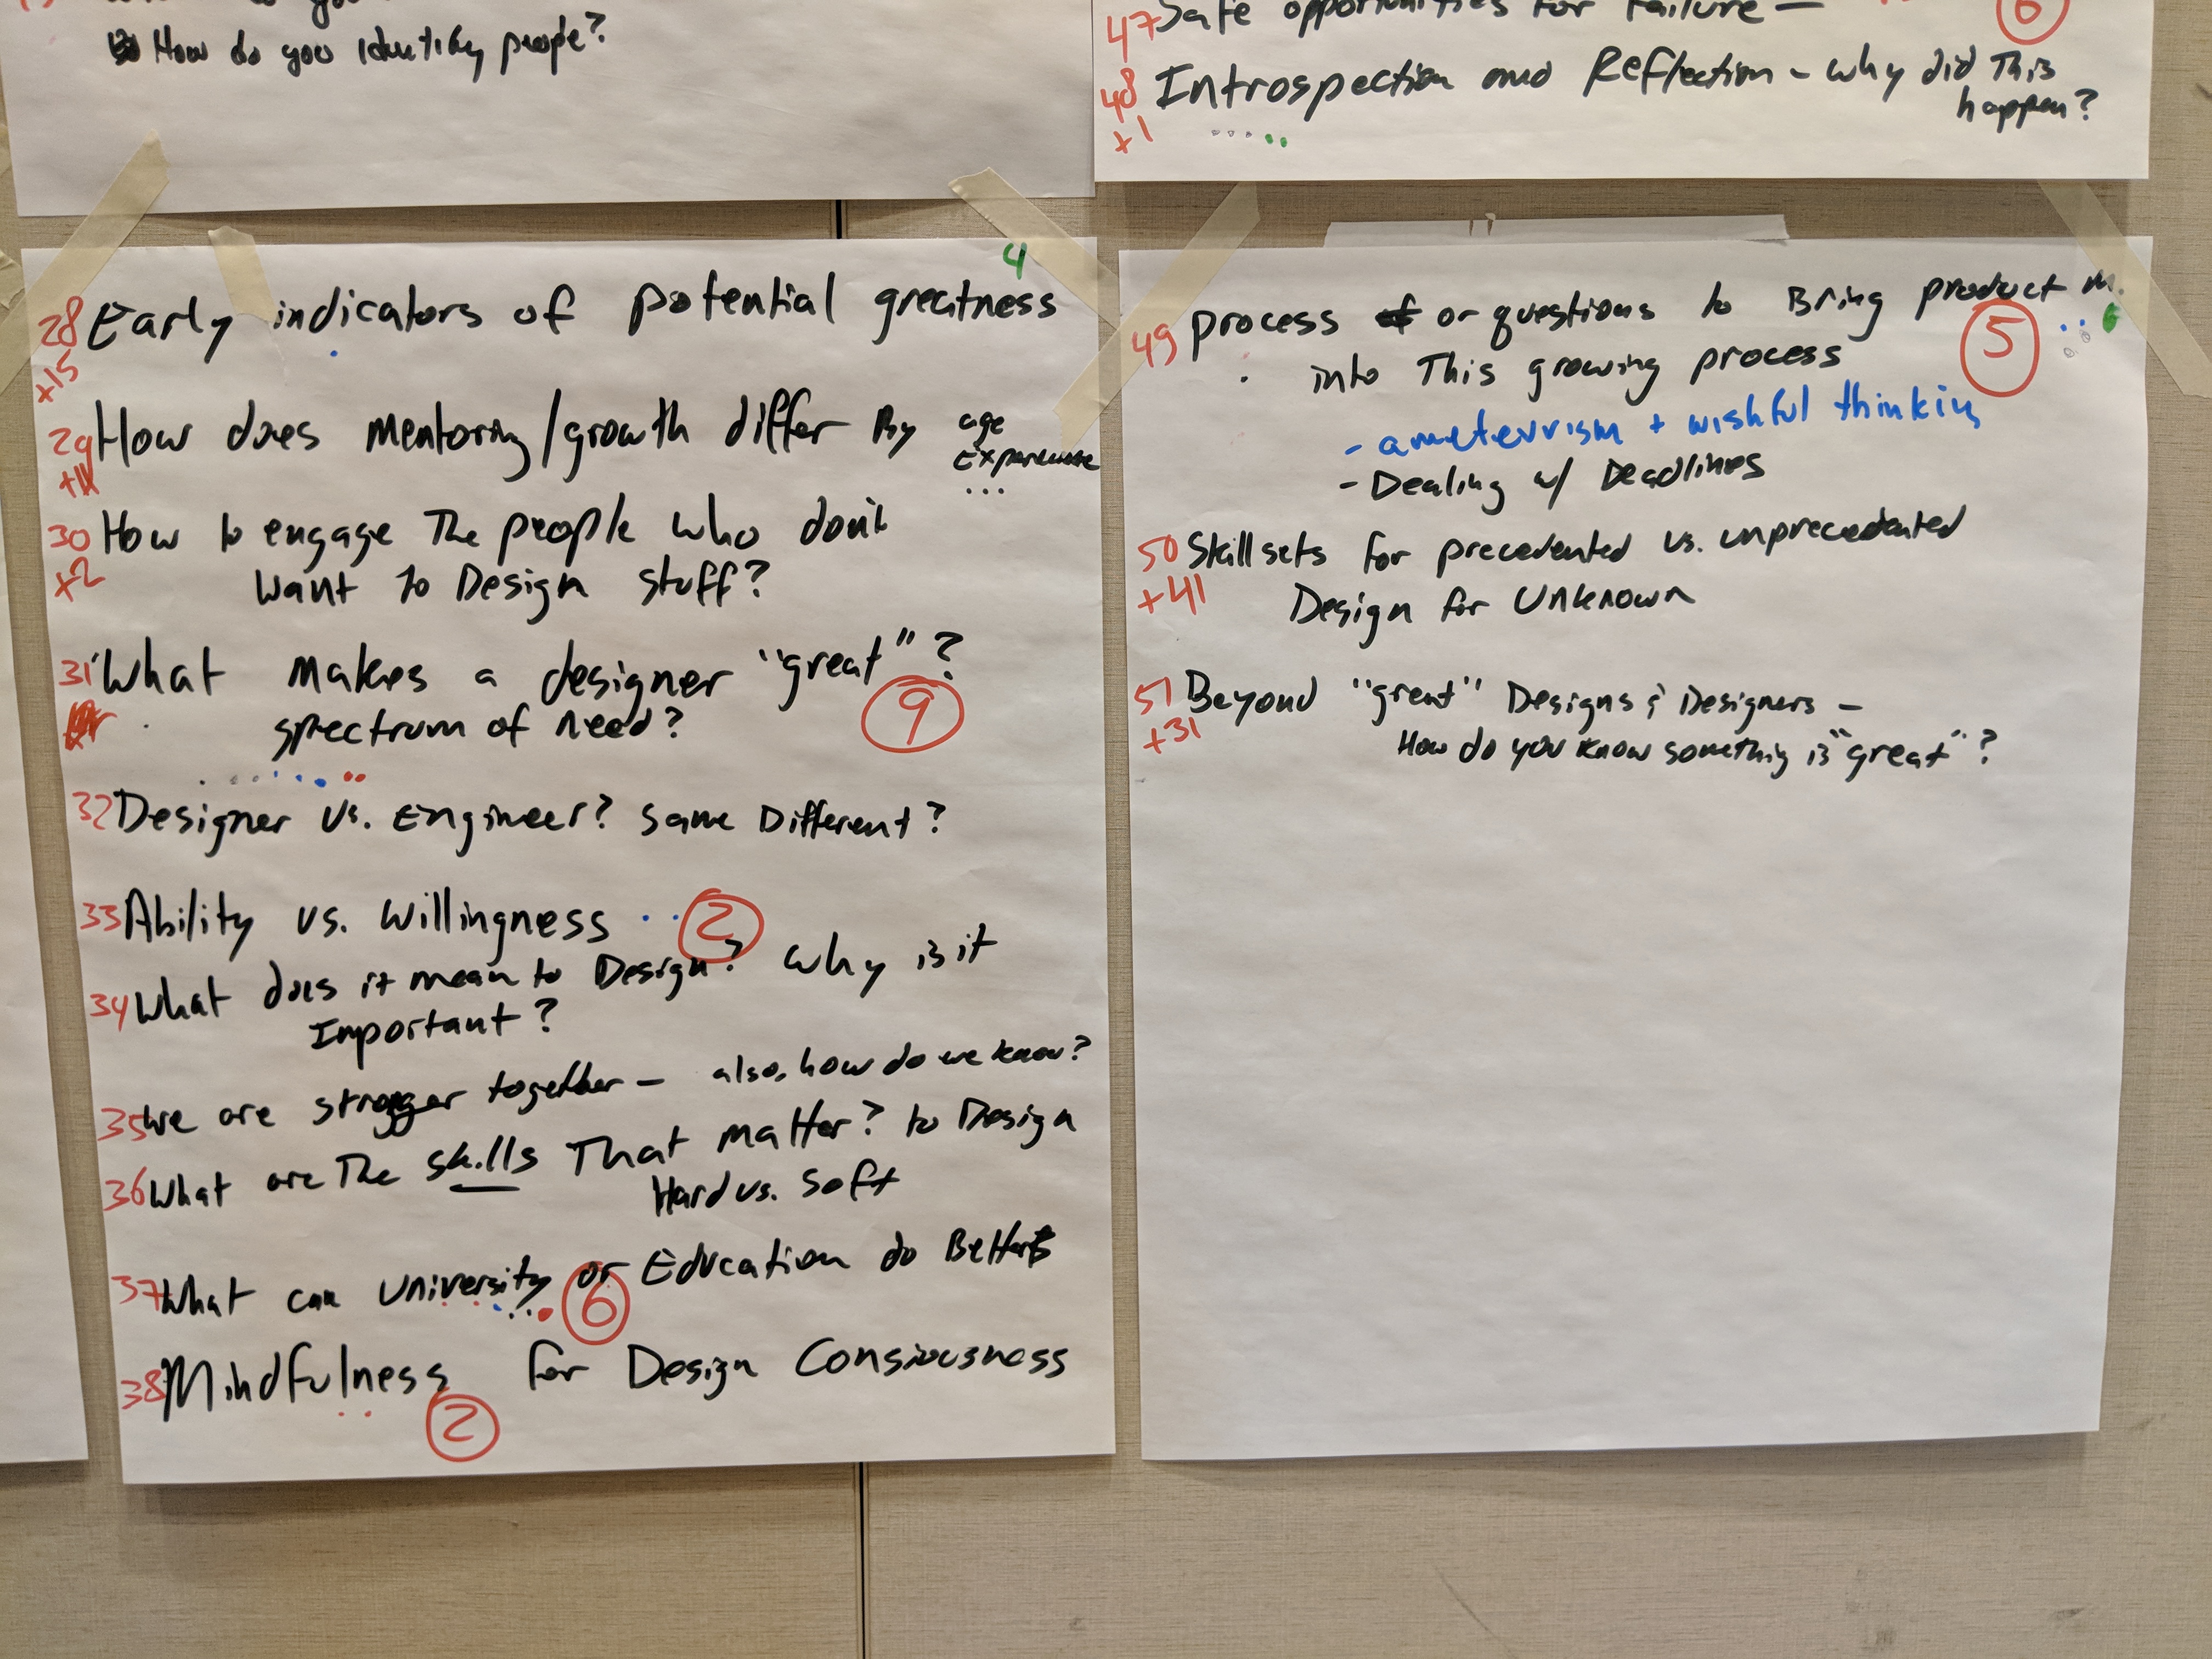 How do you identify people?
47 Safe opportunities for failure –
6
48 Introspection and Reflection – why did This
happen?
+1
4
28 Early indicators of potential greatness
+15
29 How does mentoring/growth differ By age
Experience
...
+11
30 How to engage The people who don't
+2 want to Design stuff?
31 What makes a designer "great"?
spectrum of need? 9
32 Designer vs. Engineer? Same Different?
33 Ability vs. Willingness 2
34 What does it mean to Design? Why is it
Important?
35 We are stronger together – also, how do we know?
36 What are The skills That matter? to Design
Hard vs. Soft
37 What can University or Education do Better
6
38 Mindfulness for Design Consiousness
2
49 process or questions to Bring product m.
into This growing process 5
- ameteurism + wishful thinking
- Dealing w/ Deadlines
50 Skillsets for precedented vs. unprecedented
+41 Design for Unknown
51 Beyond "great" Designs & Designers –
+31 How do you know something is "great"?